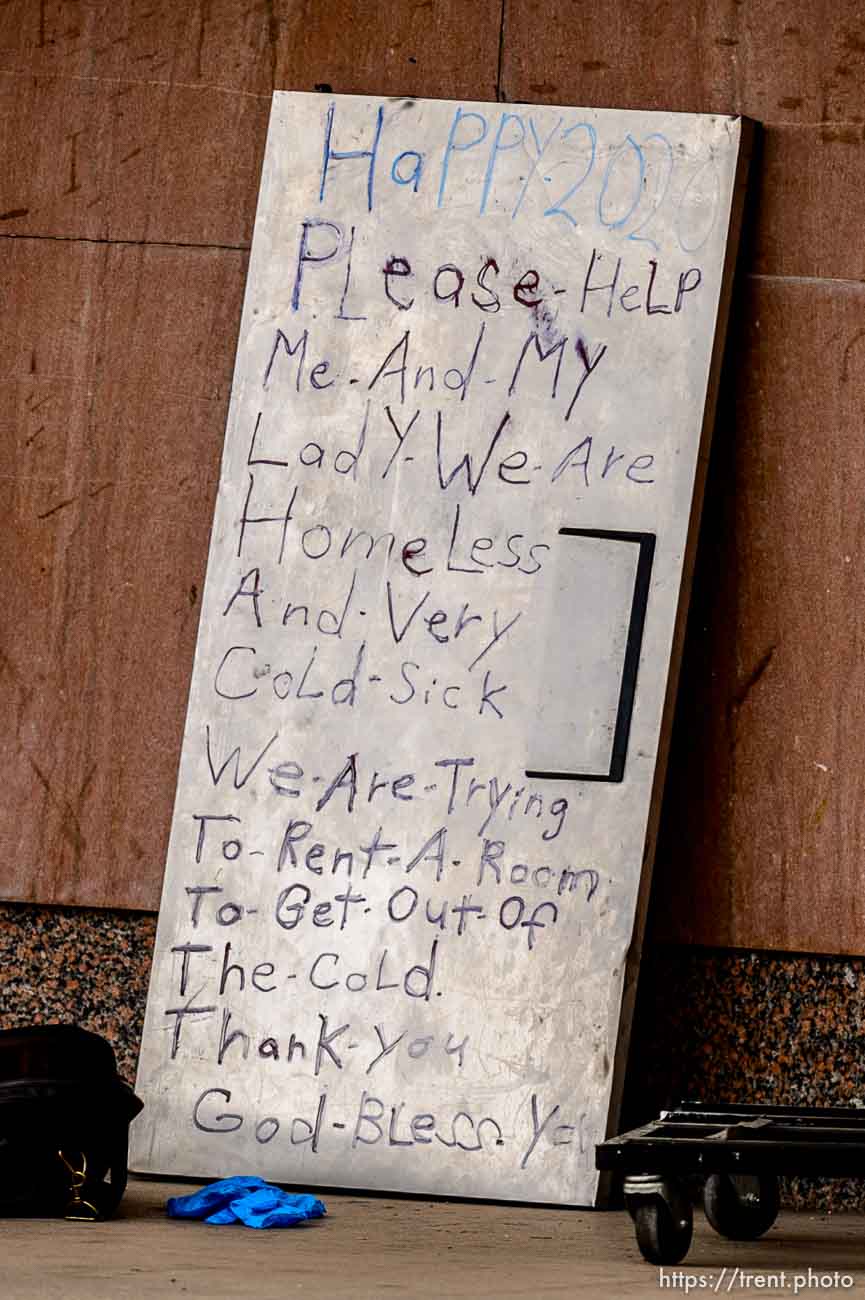 HaPPY-2020
PLease-HeLP
Me-And-MY
LadY-We-Are
HomeLess
And-Very
CoLd-Sick
We-Are-Trying
To-Rent-A-Room
To-Get-Out-Of
The-CoLd.
Thank-you
God-BLess-You
https://trent.photo